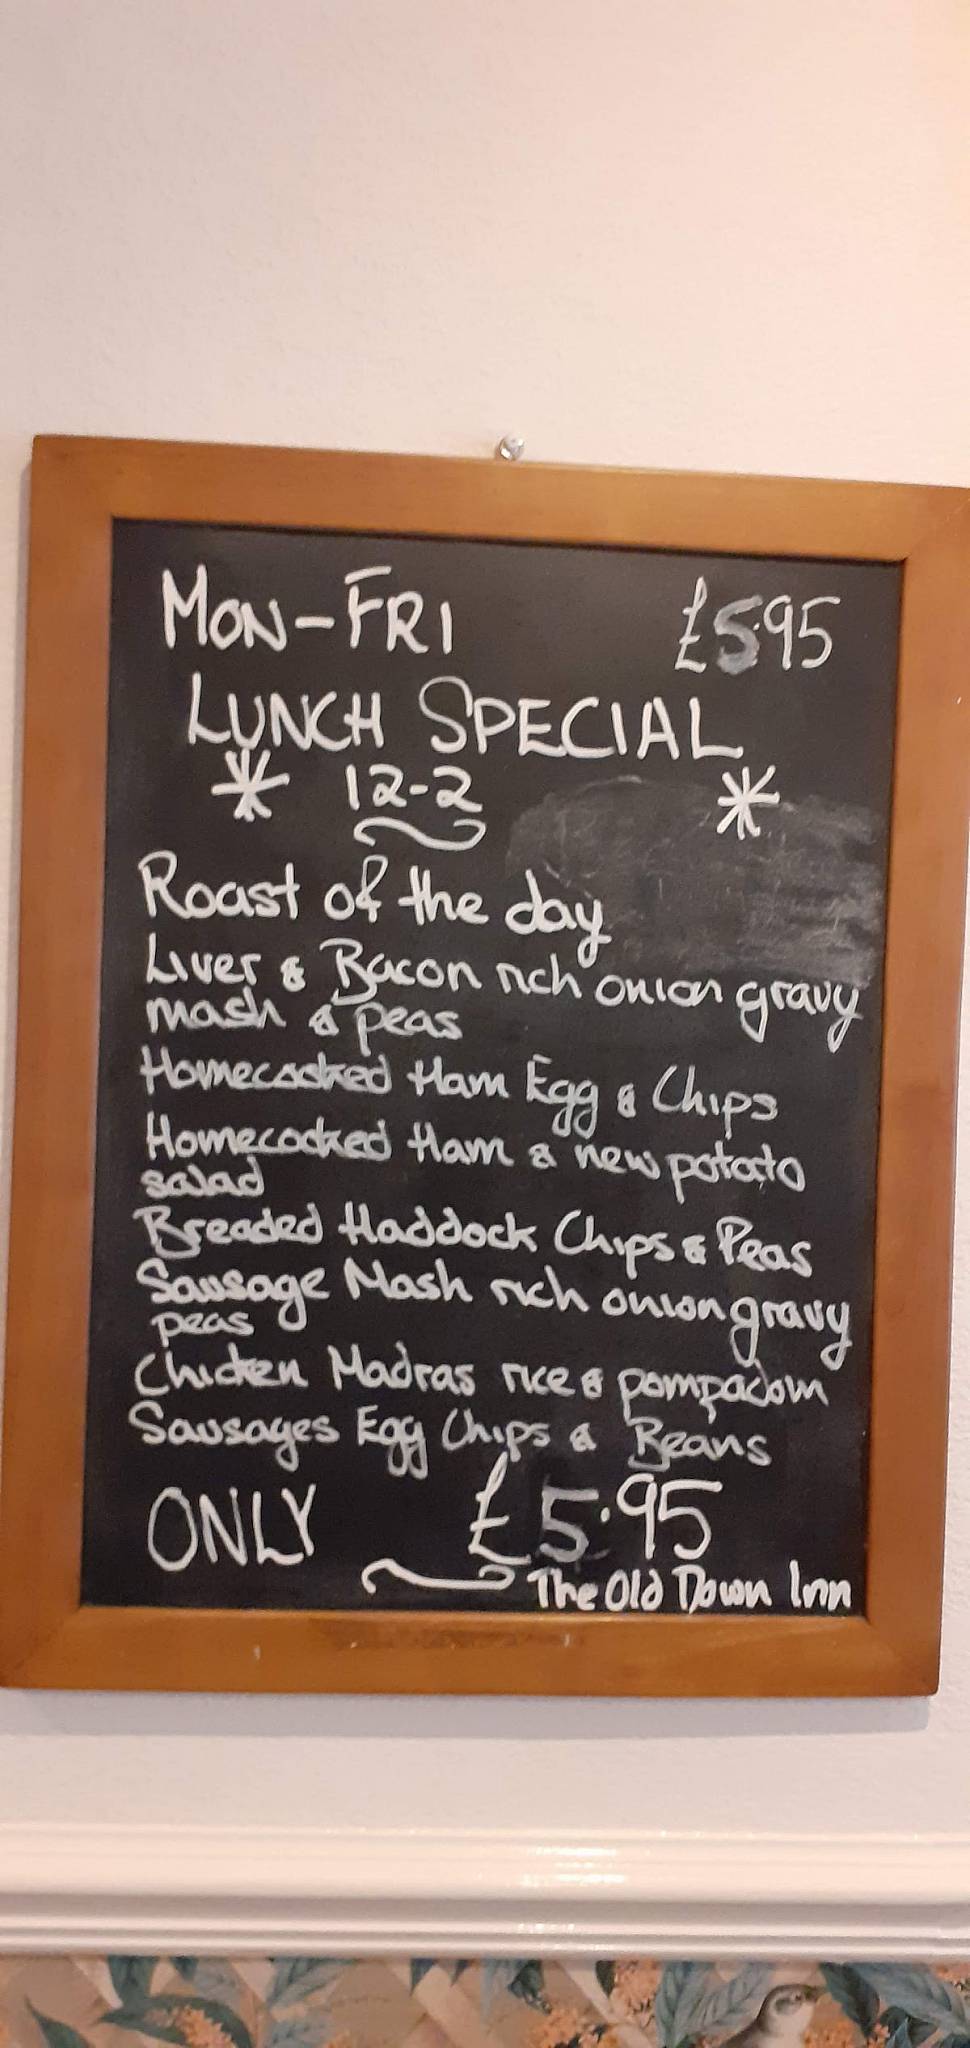 MON-FRI £5.95
LUNCH SPECIAL
* 12-2 *
Roast of the day
Liver & Bacon rich onion gravy
mash & peas
Homecooked Ham Egg & Chips
Homecooked Ham & new potato
salad
Breaded Haddock Chips & Peas
Sausage Mash rich onion gravy
peas
Chicken Madras rice & pompadom
Sausages Egg Chips & Beans
ONLY £5.95
The Old Down Inn